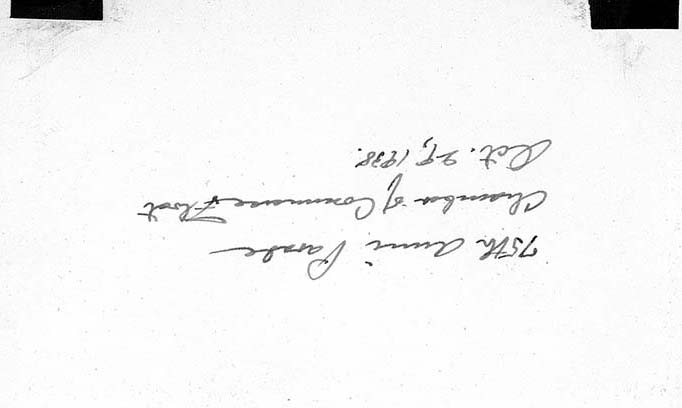 75th Anni Parade
Chamber of Commerce Float
Oct. 29, 1938.